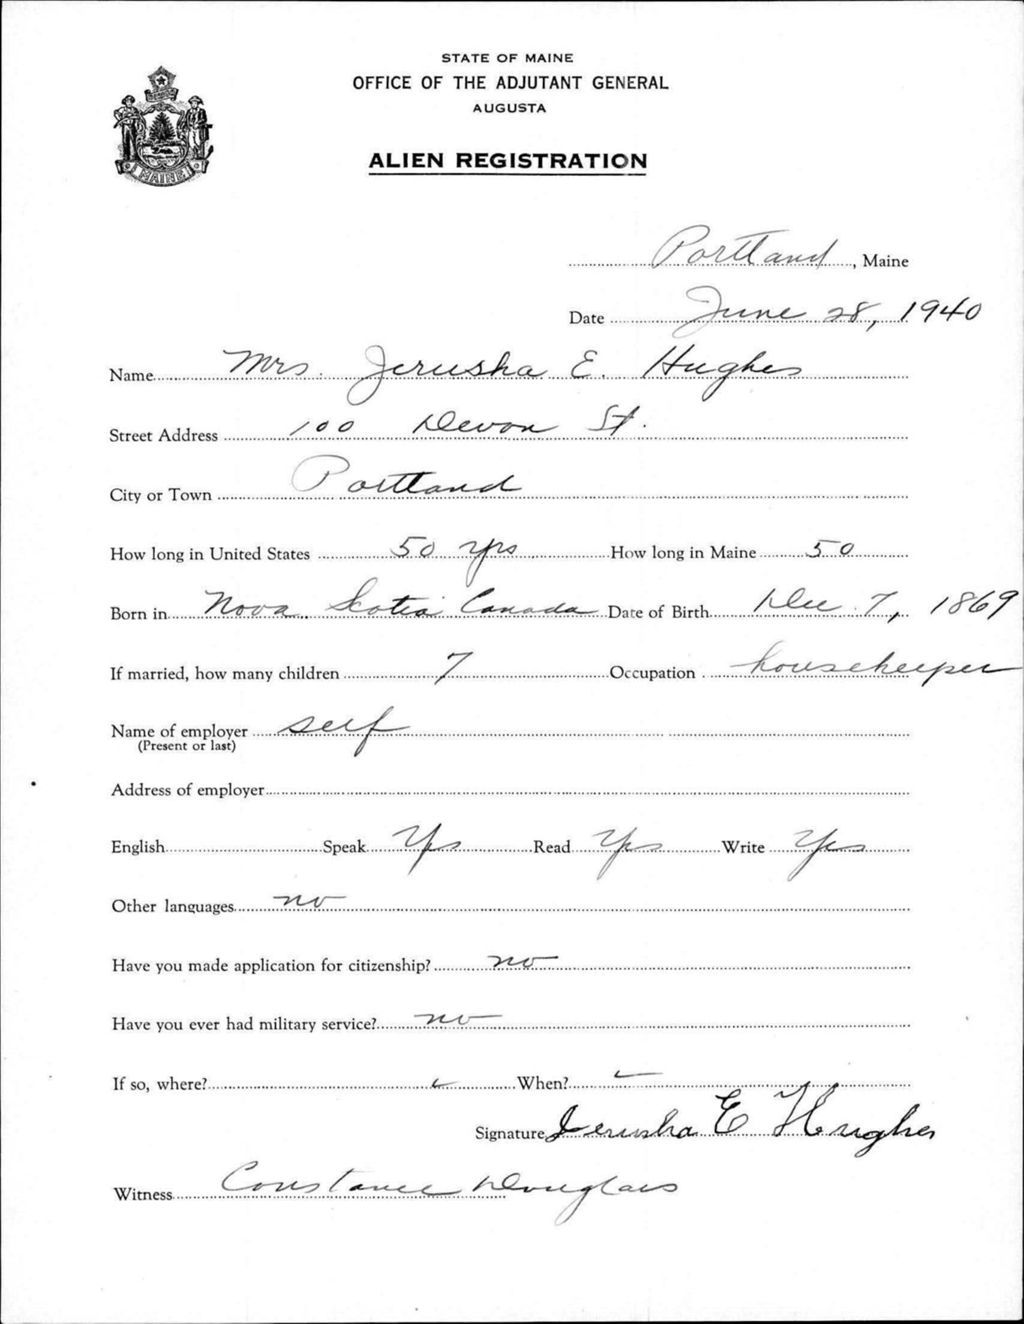 STATE OF MAINE
OFFICE OF THE ADJUTANT GENERAL
AUGUSTA
ALIEN REGISTRATION
MAINE
Portland, Maine
Date June 28, 1940
Name Mrs. Jerusha E. Hughes
Street Address 100 Devon St.
City or Town Portland
How long in United States 50 yrs How long in Maine 50
Born in Nova Scotia Canada Date of Birth Dec 7, 1869
If married, how many children 7 Occupation housekeeper
Name of employer self
(Present or last)
Address of employer
English Speak Yes Read Yes Write Yes
Other languages no
Have you made application for citizenship? no
Have you ever had military service? no
If so, where? When?
Signature Jerusha E Hughes
Witness Constance Douglass